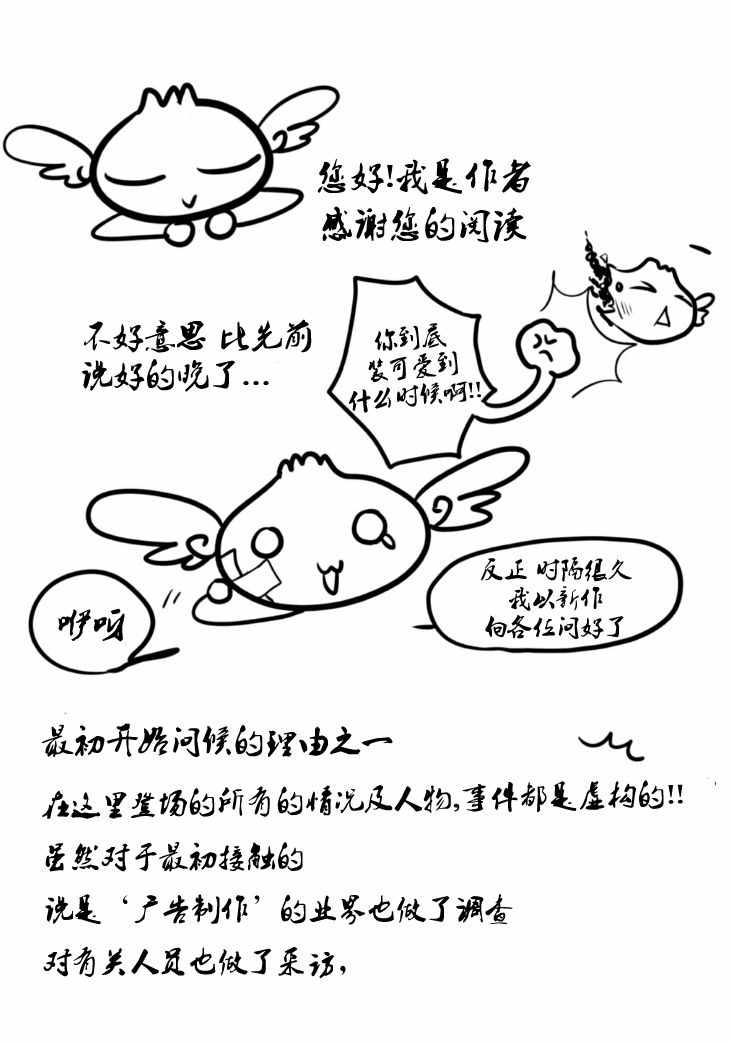 您好!我是作者
感谢您的阅读
不好意思 比先前
说好的晚了...
你到底
装可爱到
什么时候啊!!
咿呀
反正 时隔很久
我以新作
向各位问好了
最初开始问候的理由之一
在这里登场的所有的情况及人物,事件都是虚构的!!
虽然对于最初接触的
说是‘广告制作’的业界也做了调查
对有关人员也做了采访,